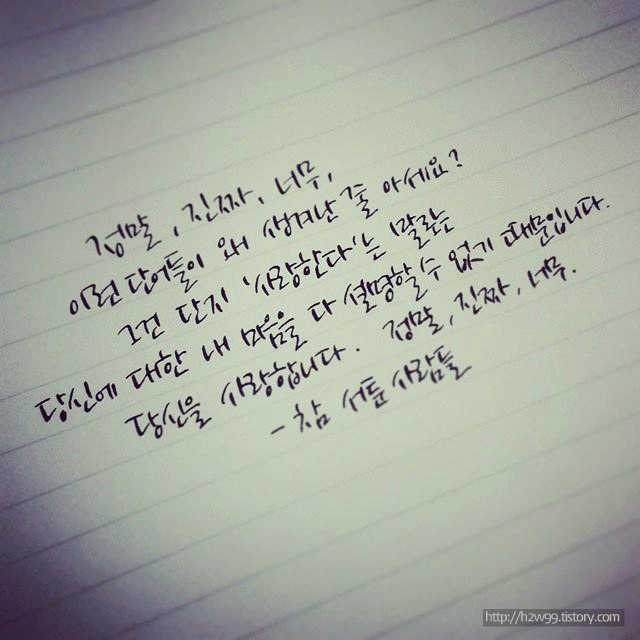 정말, 진짜, 너무,
이런 단어들이 왜 생겨난 줄 아세요?
그건 단지 '사랑한다'는 말로는
당신에 대한 내 마음을 다 설명할 수 없기 때문입니다.
당신을 사랑합니다. 정말, 진짜, 너무.
- 참 서툰 사람들
http://h2w99.tistory.com